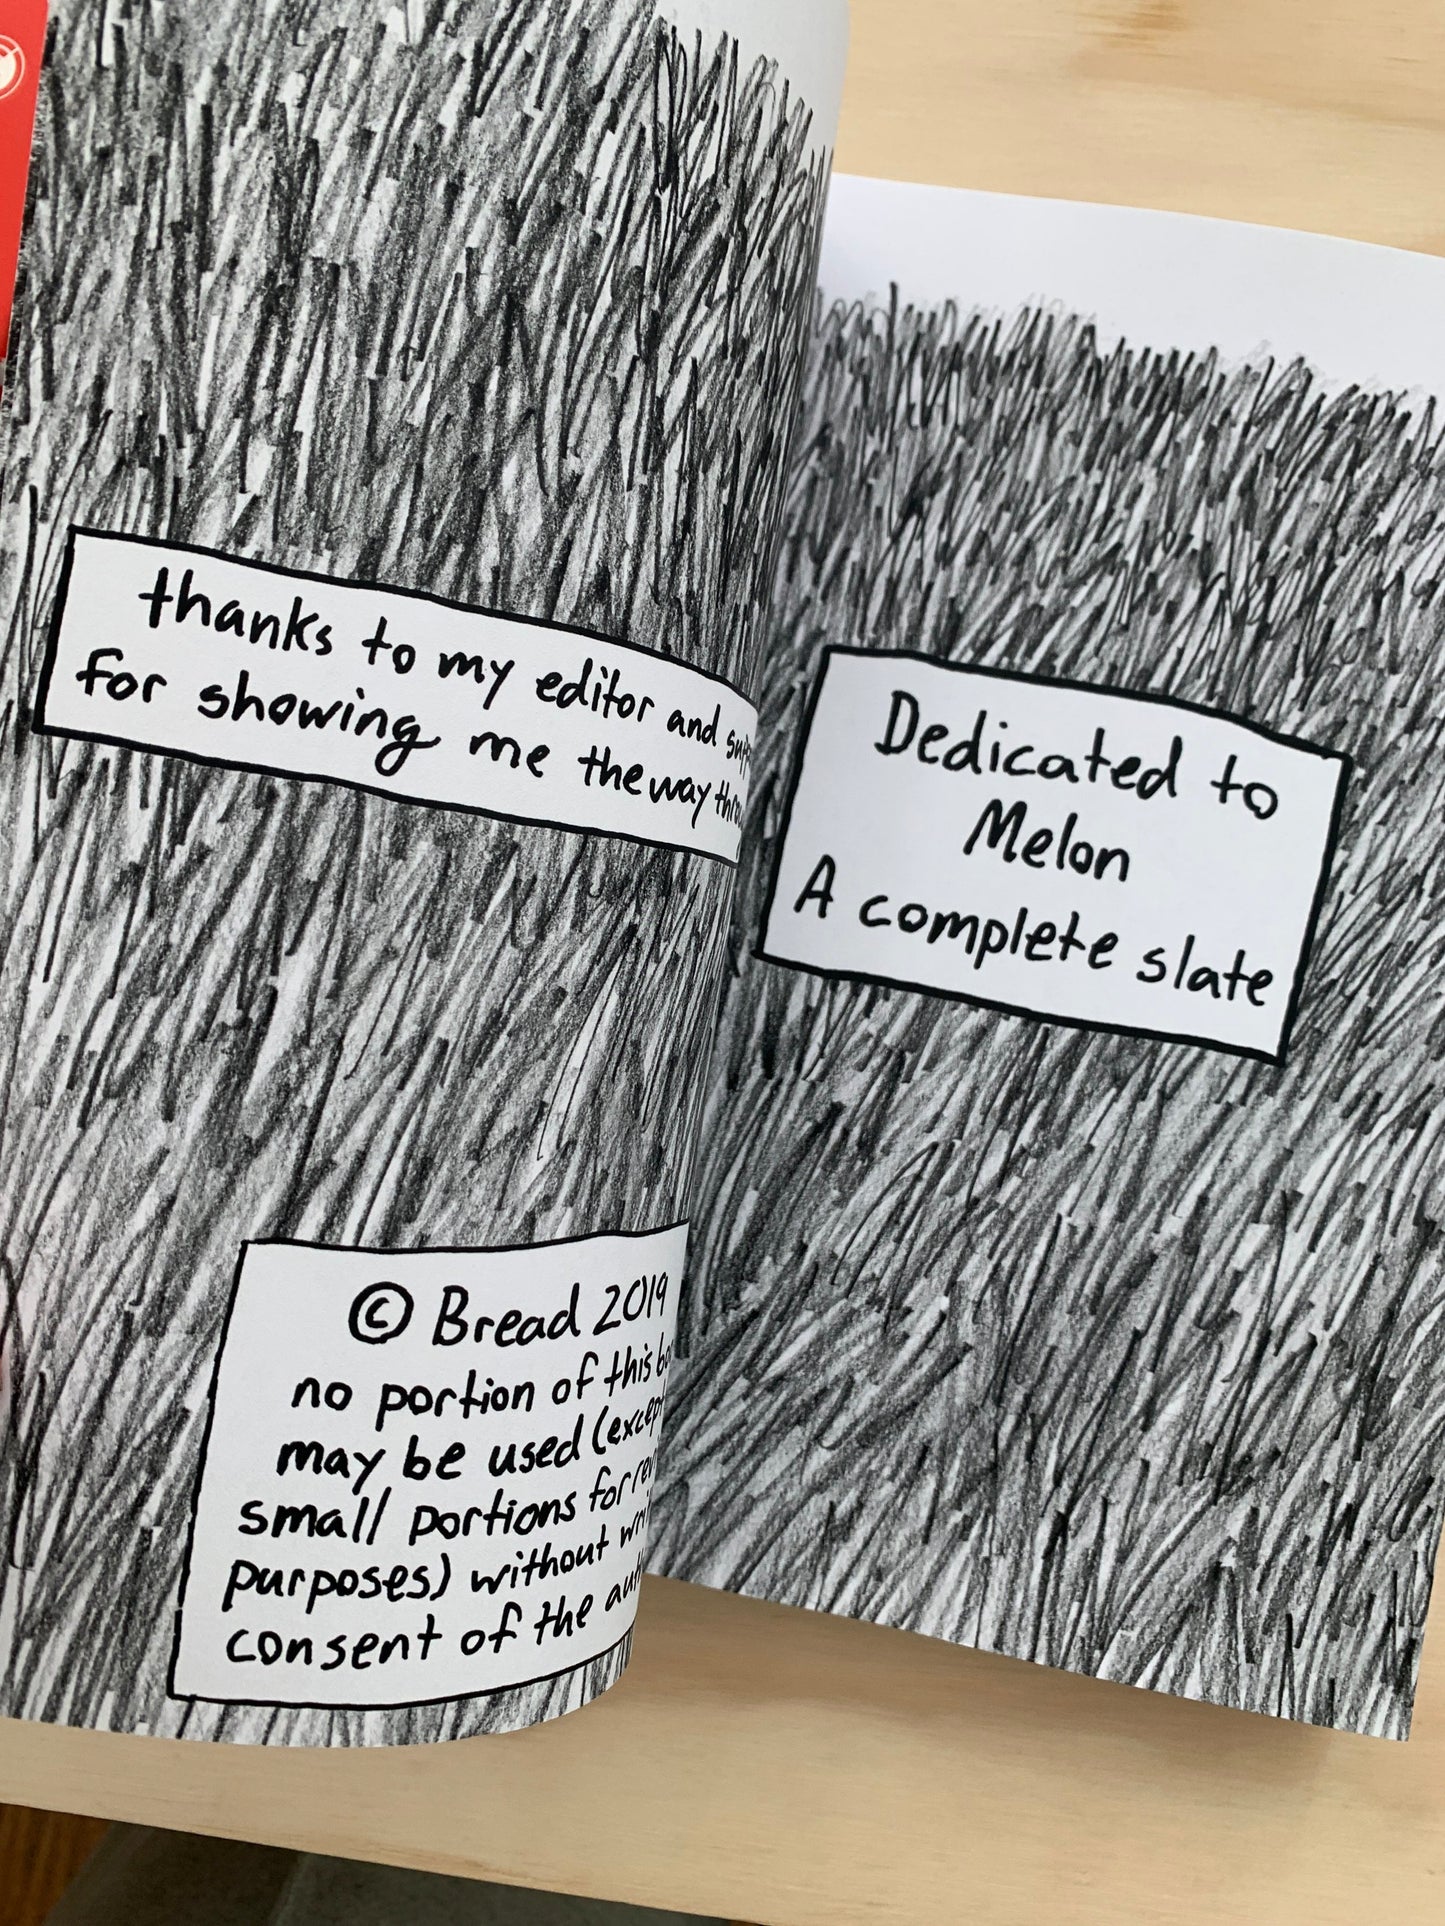 thanks to my editor and
for showing me the way
© Bread 2019
no portion of this
may be used (except
small portions for
purposes) without
consent of the
Dedicated to
Melon
A complete slate